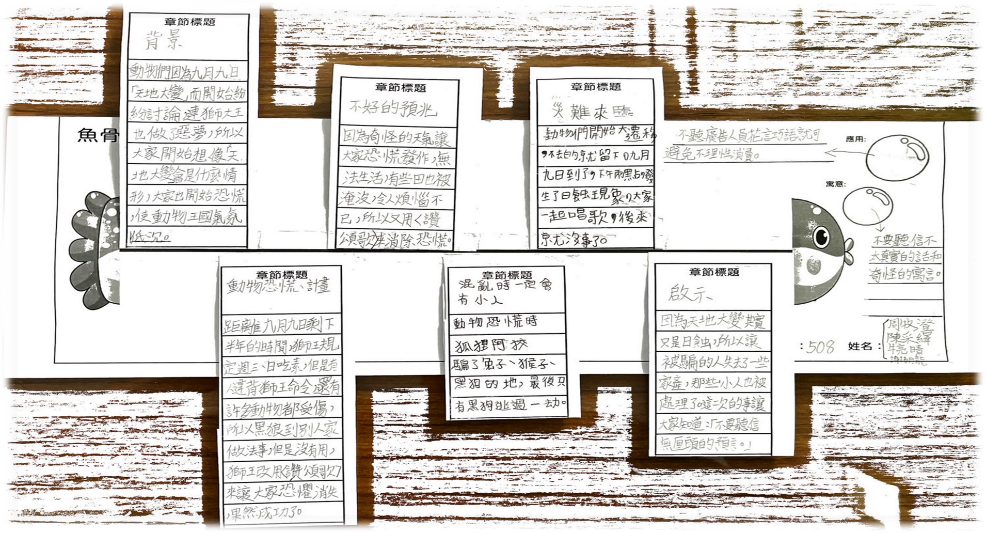 魚骨
章節標題
背景
動物們因為九月九日
「天地大變」而開始紛
紛討論,連獅大王
也做了惡夢,所以
大家開始想像「天
地大變會是什麼情
形,大家也開始恐慌
,使動物王國氣氛
低沉。
章節標題
不好的預兆
因為奇怪的天氣讓
大家恐慌發作,無
法生活,有些田也被
淹沒,令人煩惱不
已,所以又用く讚
頌歌來消除恐慌。
章節標題
災難來臨
動物們開始大遷移
,不去的就留下。九月
九日到了,下午兩點
生了日蝕現象,大家
一起唱歌,後來
就沒事了。
不聽廣告人員花言巧語就可
避免不理性消費。
應用:
寓意:
不要聽信不
太真實的話和
奇怪的寓言。
章節標題
動物恐慌、計畫
距離九月九日剩下
半年的時間,獅王規
定週三、日吃素,但是有
人違背獅王命令,還有
許多動物都受傷,
所以黑狼到別人家
做法事,但是沒有用,
獅王改用讚頌歌
來讓大家恐懼消失
,果然成功了。
章節標題
混亂時一定會
有小人
動物恐慌時
狐狸阿狡
騙了兔子、猴子、
黑狗的地,最後只
有黑狗逃過一劫。
章節標題
啟示
因為天地大變其實
又是日蝕,所以讓
被騙的人失去了一些
家產,那些小人也被
處理了。這次的事讓
大家知道:「不要聽信
無厘頭的預言。」
:508 姓名: